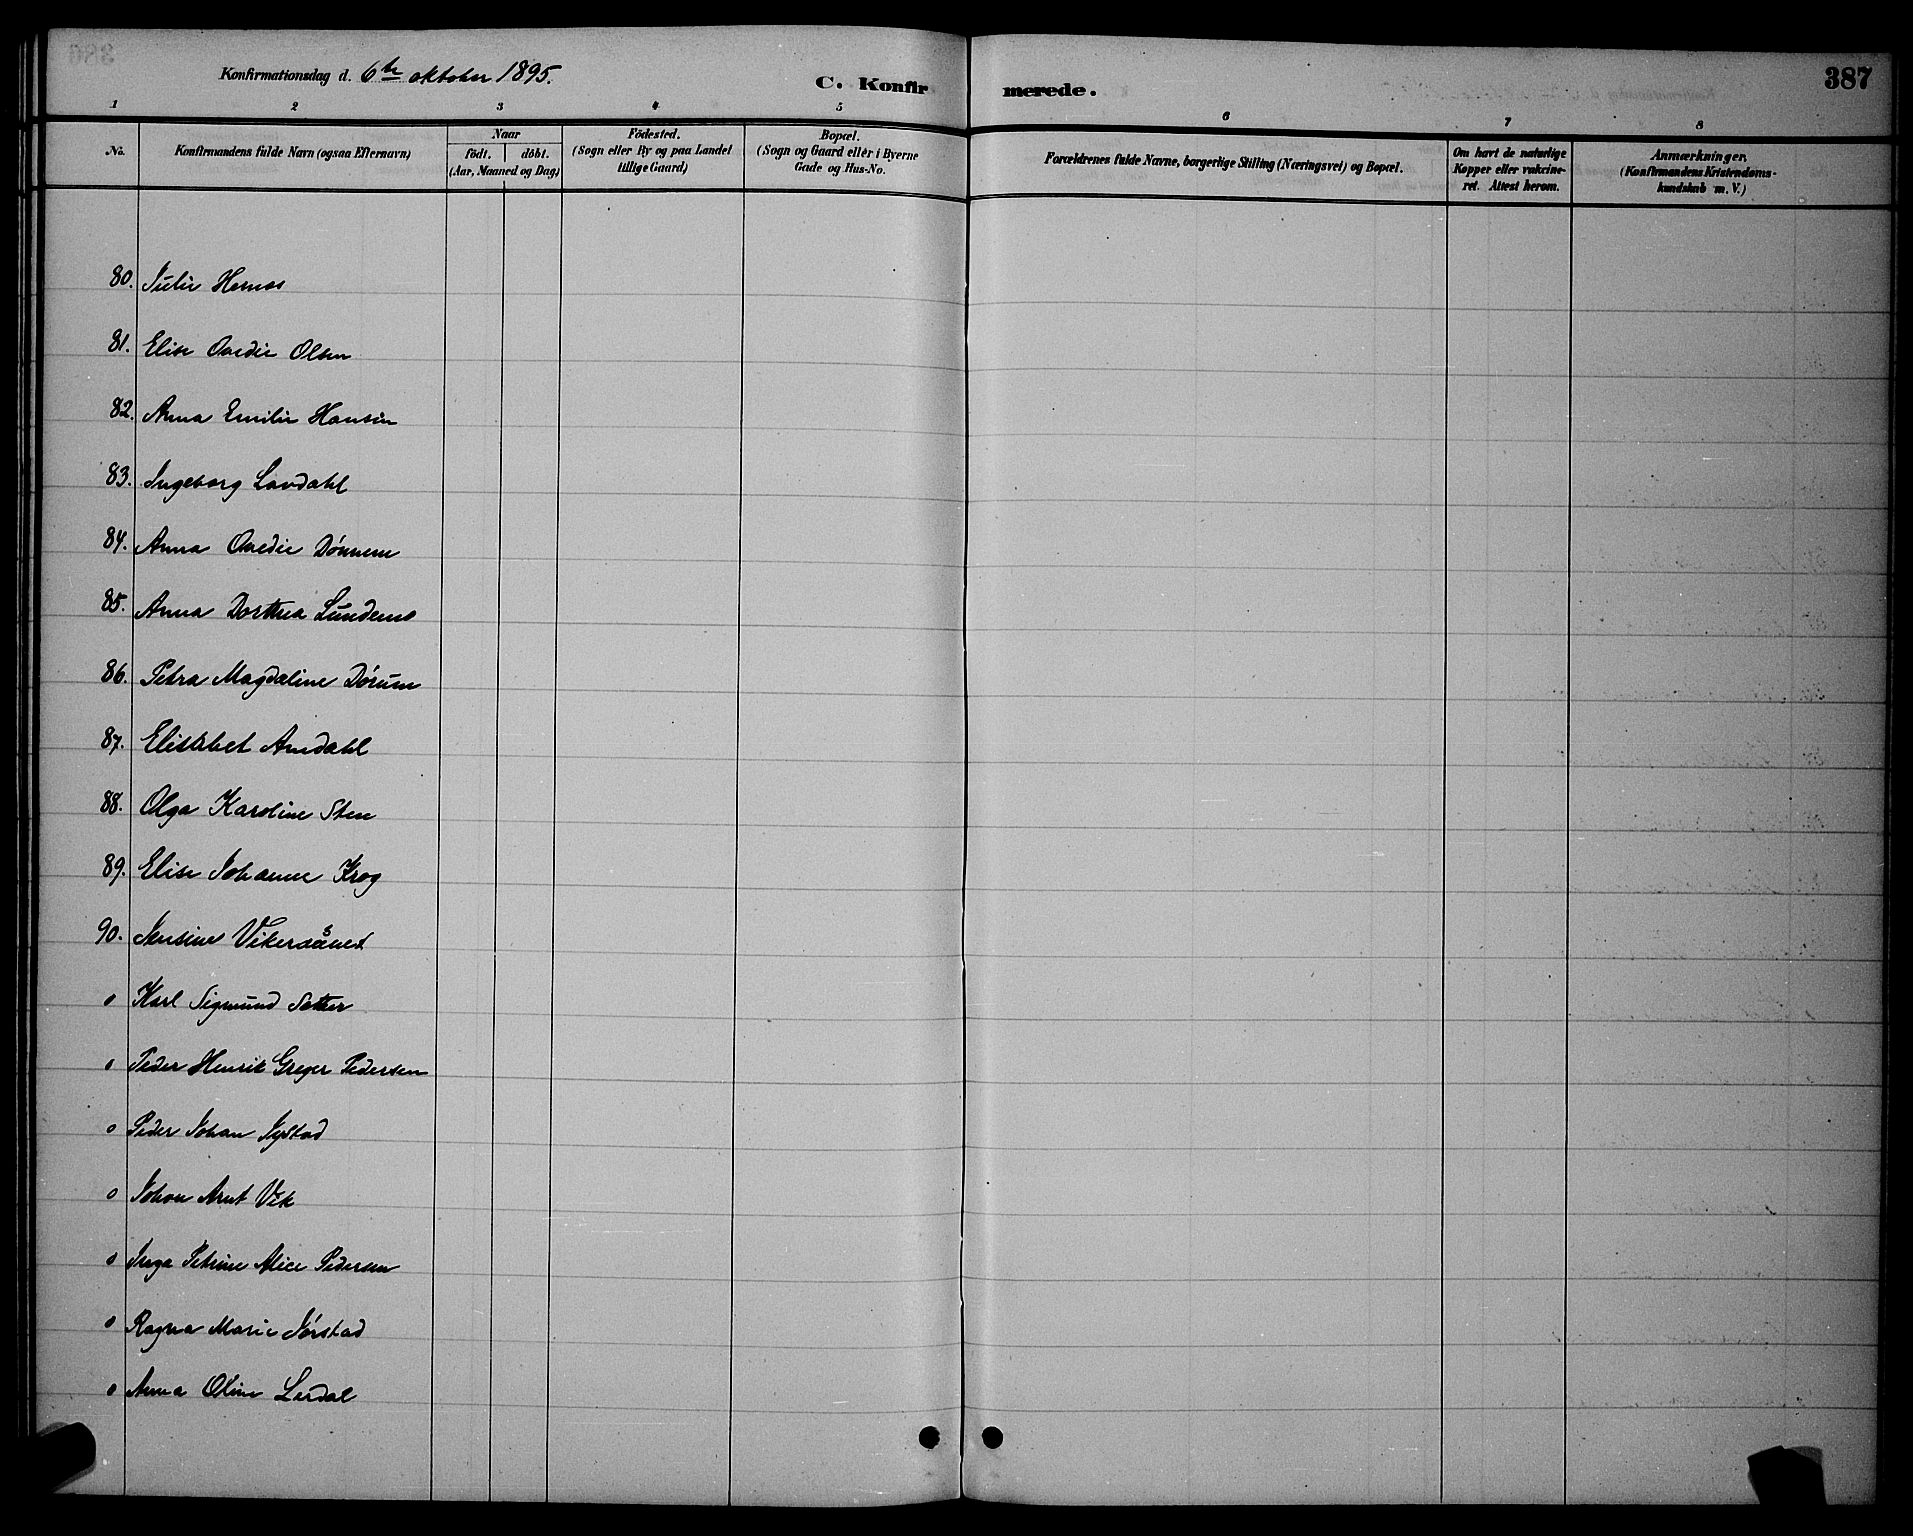 Konfirmationsdag d. 6te oktober 1895.
C. Konfirmerede.
387
1 2 3 4 5 6 7 8
No.
Konfirmandens fulde Navn (ogsaa Efternavn)
Naar
födt. döbt.
(Aar, Maaned og Dag)
Födested.
(Sogn eller By og paa Landet
tillige Gaard)
Bopæl.
(Sogn og Gaard eller i Byerne
Gade og Hus-No.
Forældrenes fulde Navne, borgerlige Stilling (Næringsvei) og Bopæl.
Om havt de naturlige
Kopper eller vakcine-
ret. Attest herom.
Anmærkninger.
(Konfirmandens Kristendoms-
kundskab m. V.)
80. Julie Hernes
81. Elise Ovedie Olsen
82. Anna Emilie Hansen
83. Ingeborg Lavdahl
84. Anna Ovedie Dönnem
85. Anna Dorthea Lundemo
86. Petra Magdaline Dørum
87. Elisabet Amdahl
88. Olga Karoline Sten
89. Elise Johanne Krog
90. Jensine Vikersånet
0 Karl Sigmund Sether
0 Peder Henrik Greger Pedersen
0 Peder Johan Systad
0 Johan Arnt Vik
0 Inga Petrine Alice Pedersen
0 Ragna Marie Sørstad
0 Anna Oline Lerdal